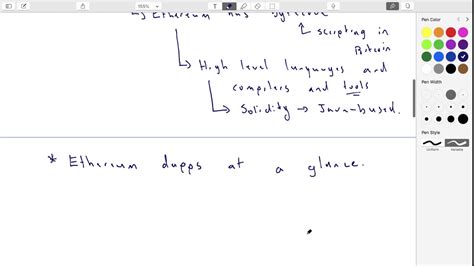 Ethereum has
scripting in
Bitcoin
High level languages and
compilers and tools
Solidity → Java-based.
* Ethereum dapps at a glance.
Pen Color
Pen Width
Pen Style